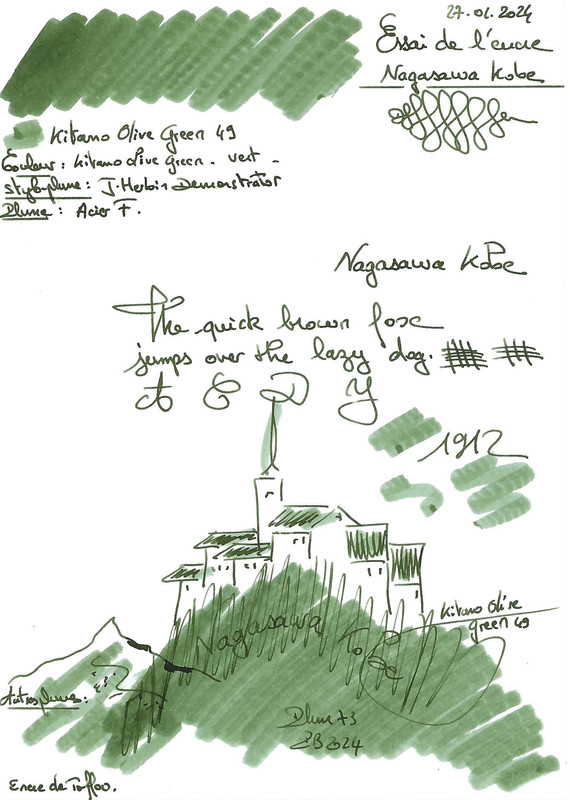 27.01.2024
Essai de l'encre
Nagasawa Kobe
Kitano Olive Green 49
Couleur : Kitano olive green - vert -
stylo plume : J. Herbin Demonstrator
Plume : Acier F.
Nagasawa Kobe
The quick brown fox
jumps over the lazy dog.
A E D Y
1912
Kitano Olive
green 49
Nagasawa Kobe
Autres plumes :
Plum 73
2024